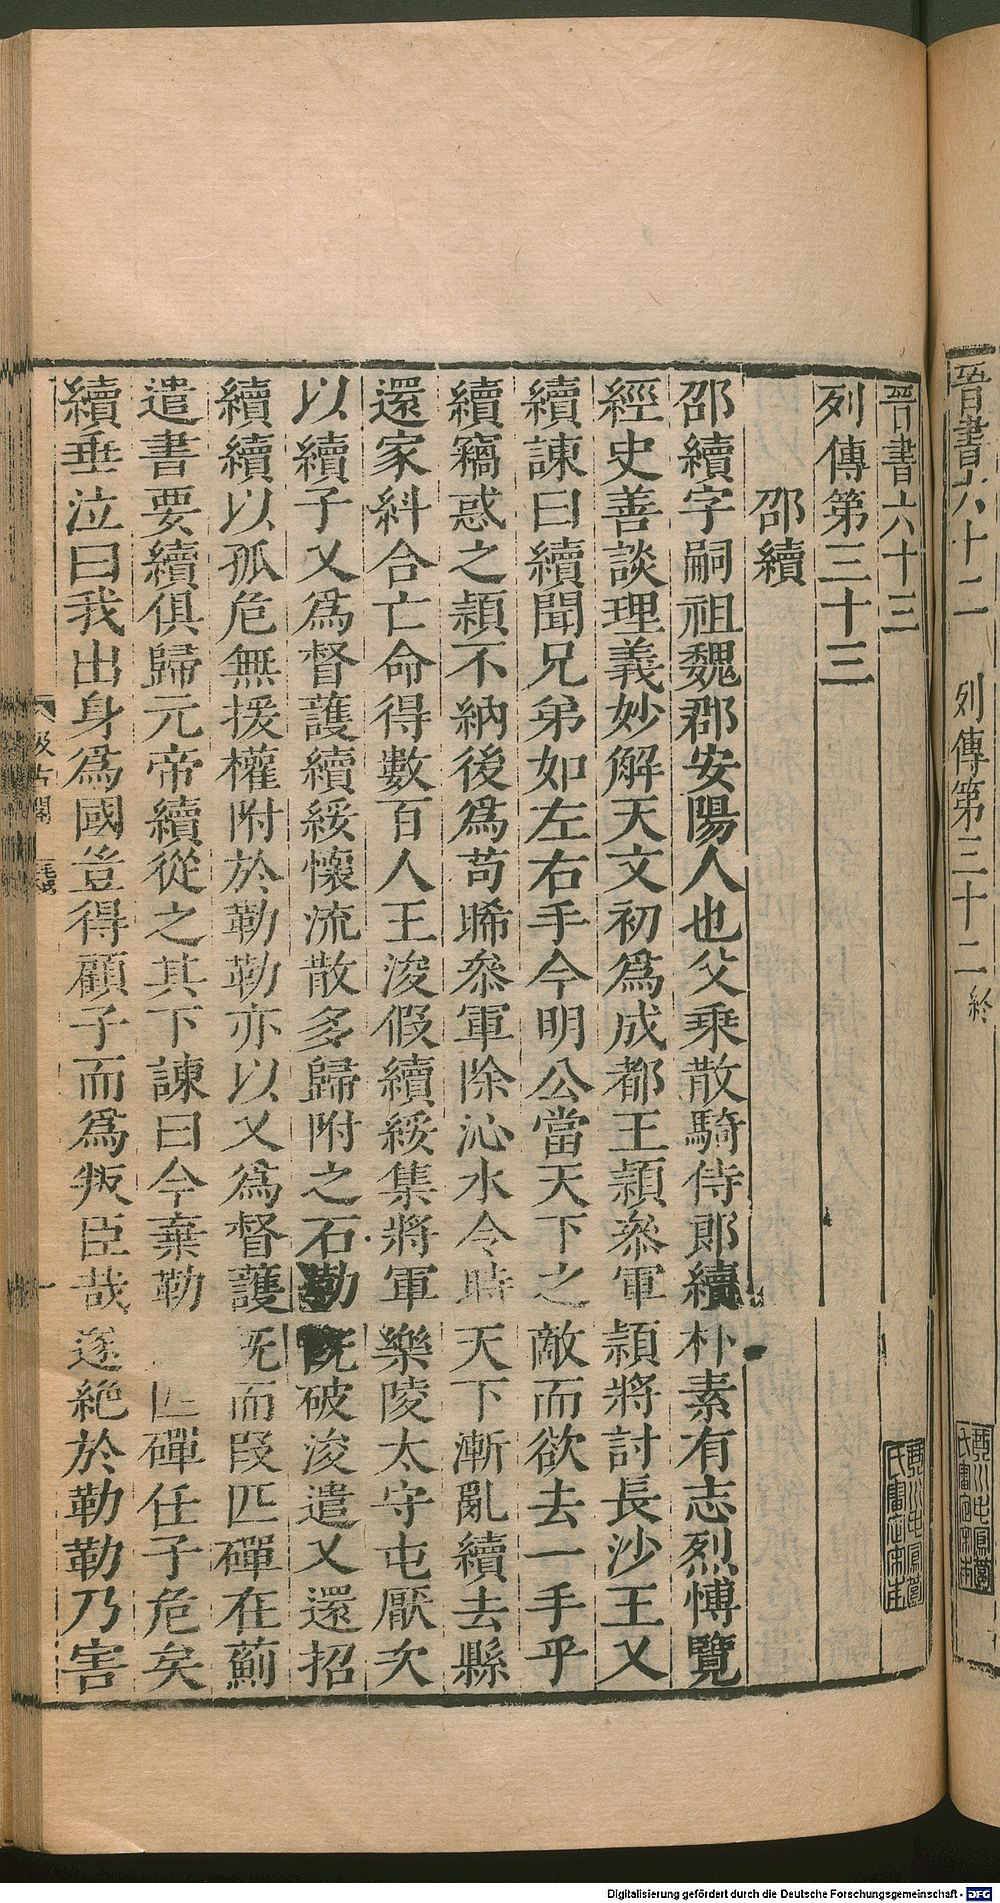 晉書六十二　列傳第三十二　終
晉書六十三
列傳第三十三
邵續
邵續字嗣祖魏郡安陽人也父乗散騎侍郎續朴素有志烈愽覽
經史善談理義妙解天文初爲成都王穎叅軍穎將討長沙王乂
續諫曰續聞兄弟如左右手今明公當天下之敵而欲去一手乎
續竊惑之穎不納後爲苟晞叅軍除沁水令時天下漸亂續去縣
還家糾合亡命得數百人王浚假續綏集將軍樂陵太守屯厭次
以續子乂爲督護續綏懷流散多歸附之石勒旣破浚遣乂還招
續續以孤危無援權附於勒勒亦以乂爲督護旣而段匹磾在薊
遣書要續俱歸元帝續從之其下諫曰今棄勒匹磾任子危矣
續垂泣曰我出身爲國豈得顧子而爲叛臣哉遂絕於勒勒乃害
汲古閣
一
Digitalisierung gefördert durch die Deutsche Forschungsgemeinschaft - DFG